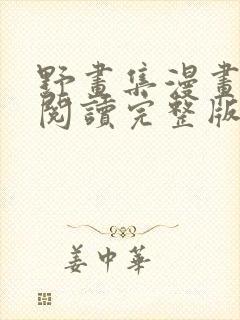 野畫集漫畫
閱讀完整版
姜中華